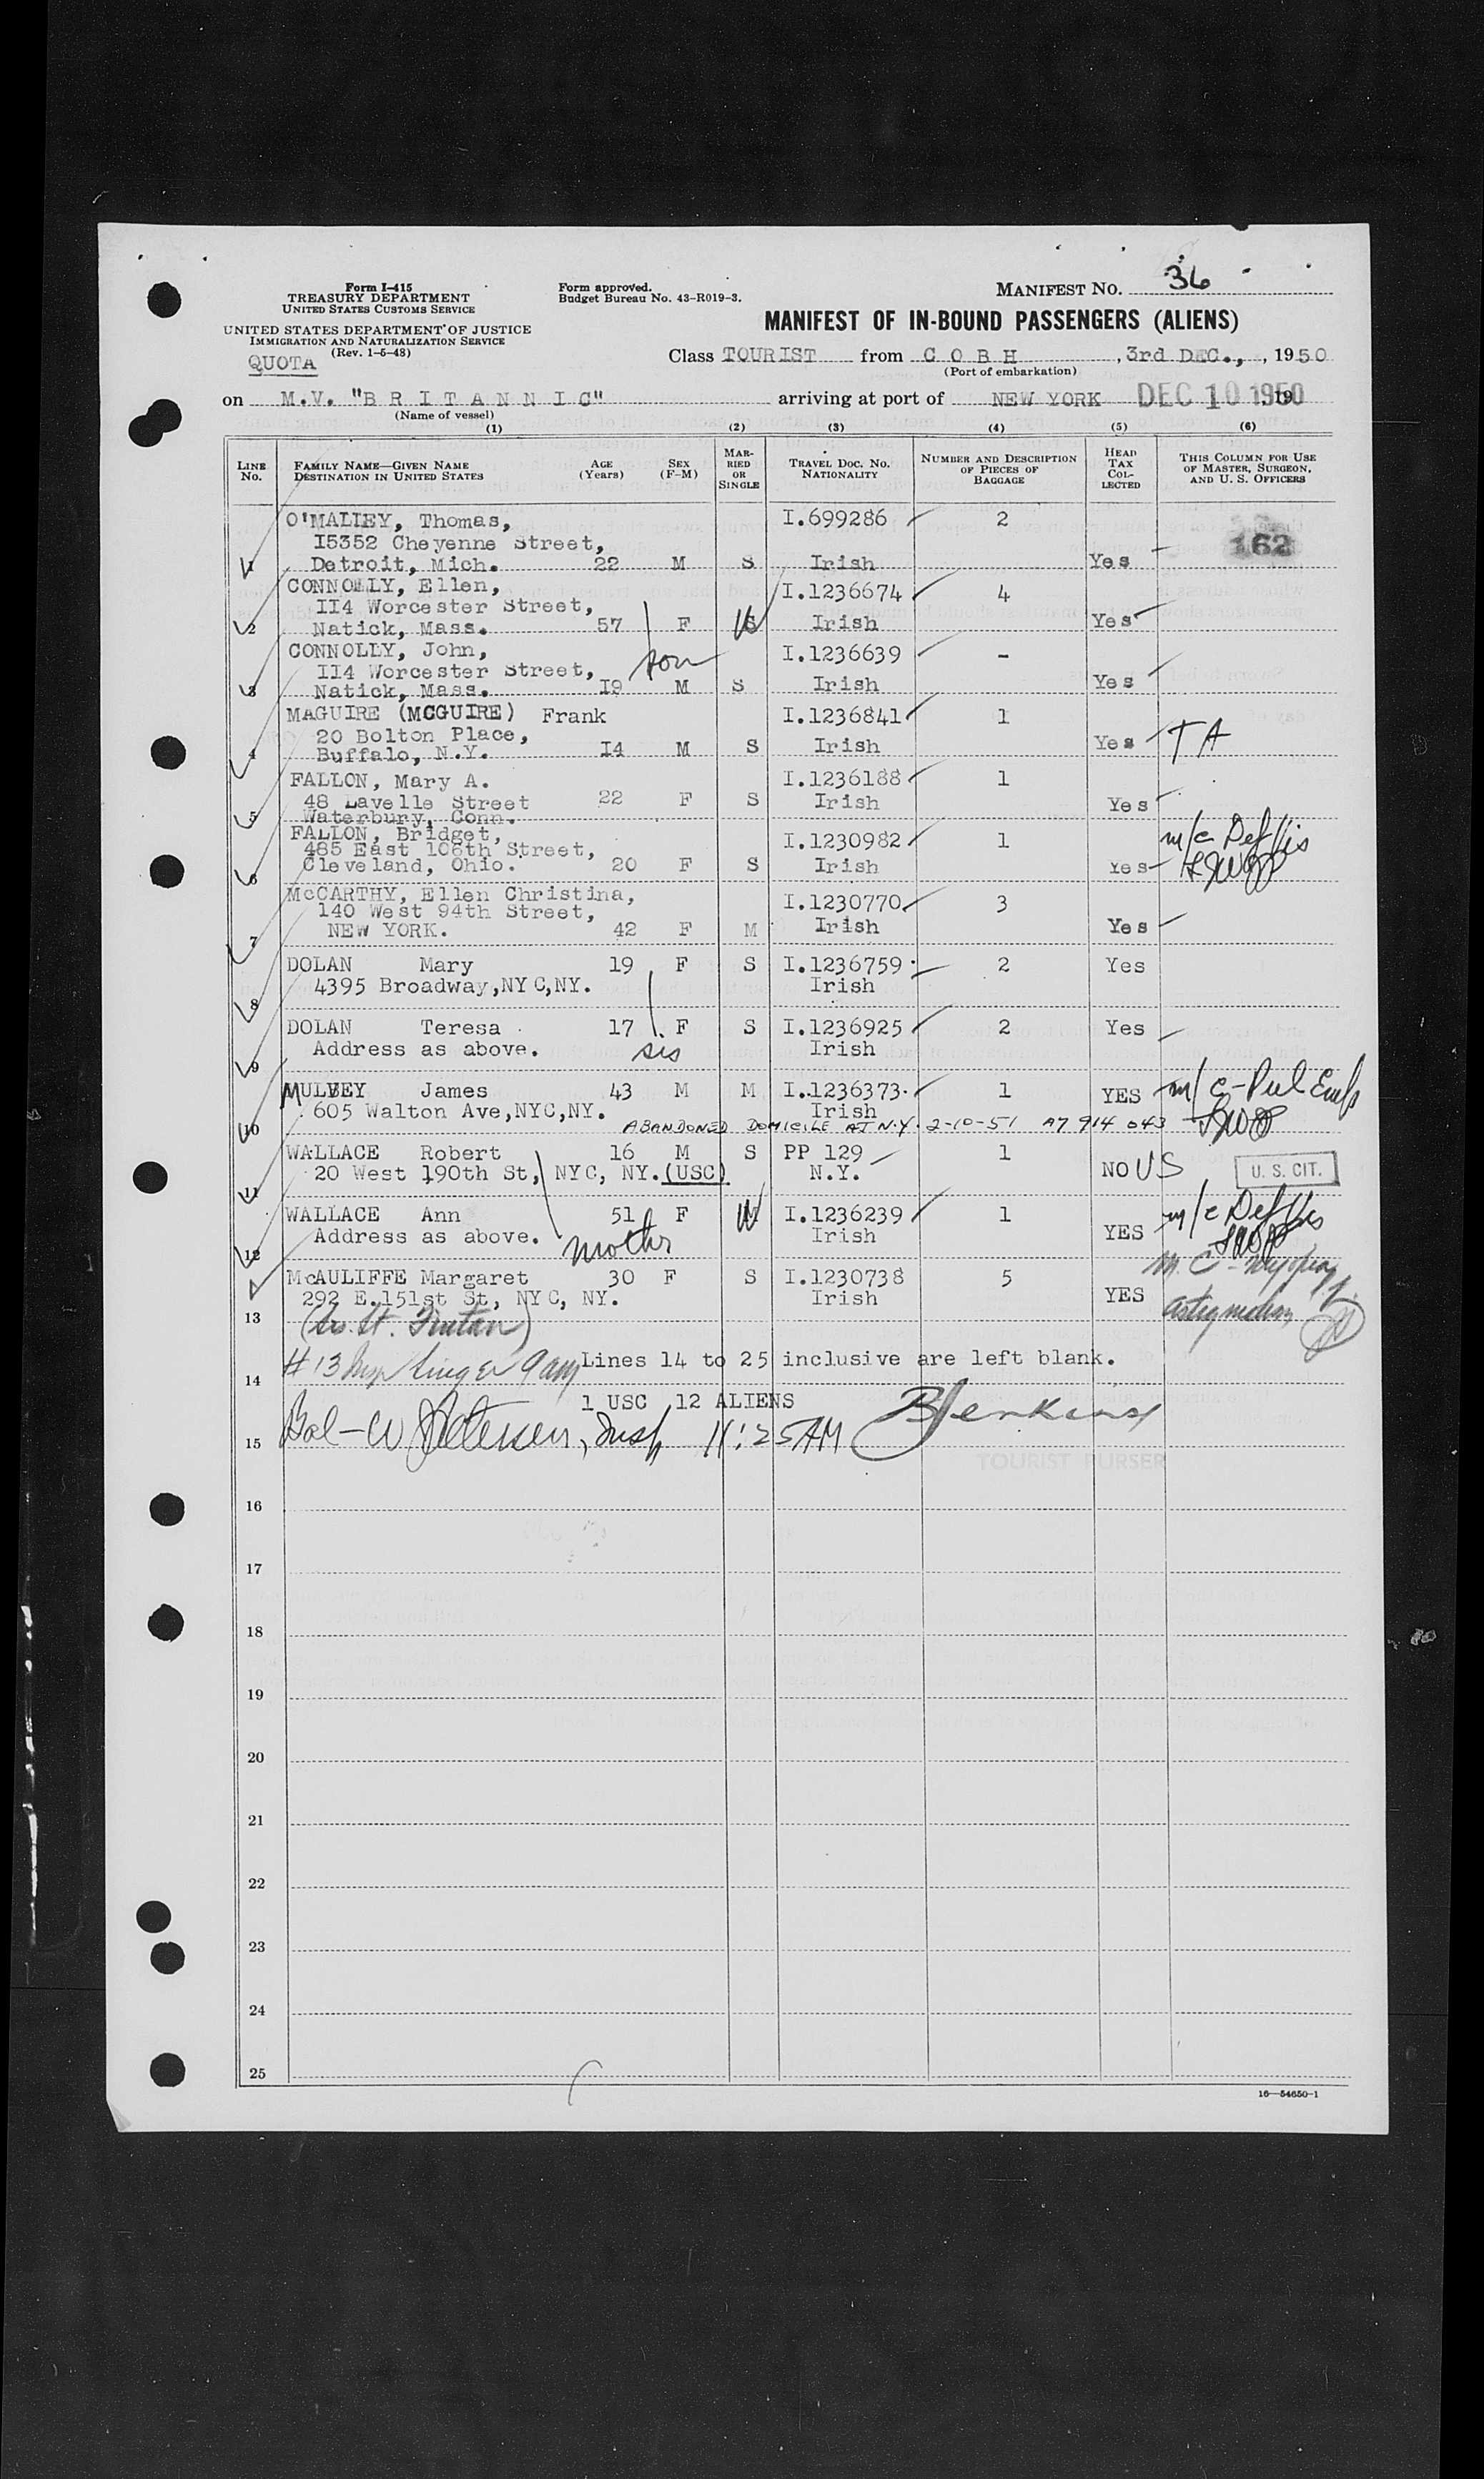 Form I-415
TREASURY DEPARTMENT
UNITED STATES CUSTOMS SERVICE
UNITED STATES DEPARTMENT OF JUSTICE
IMMIGRATION AND NATURALIZATION SERVICE
(Rev. 1-5-48)
QUOTA
Form approved.
Budget Bureau No. 43-R019-3.
MANIFEST NO. 36
MANIFEST OF IN-BOUND PASSENGERS (ALIENS)
Class TOURIST from C O B H, 3rd DEC., 1950
(Port of embarkation)
on M.V. "B R I T A N N I C" arriving at port of NEW YORK DEC 10 1950, 19
(Name of vessel)
(1) (2) (3) (4) (5) (6)
LINE No. FAMILY NAME—GIVEN NAME DESTINATION IN UNITED STATES AGE (Years) SEX (F-M) MARRIED OR SINGLE TRAVEL DOC. NO. NATIONALITY NUMBER AND DESCRIPTION OF PIECES OF BAGGAGE HEAD TAX COLLECTED THIS COLUMN FOR USE OF MASTER, SURGEON, AND U. S. OFFICERS
O'MALLEY, Thomas, I.699286 2
I5352 Cheyenne Street, 162
1 Detroit, Mich. 22 M S Irish Yes
CONNOLLY, Ellen, I.1236674 4
II4 Worcester Street,
2 Natick, Mass. 57 F W Irish Yes
CONNOLLY, John, son I.1236639 -
II4 Worcester Street,
3 Natick, Mass. I9 M S Irish Yes
MAGUIRE (MCGUIRE) Frank I.1236841 1
20 Bolton Place,
4 Buffalo, N.Y. I4 M S Irish Yes TA
FALLON, Mary A. I.1236188 1
48 Lavelle Street 22 F S Irish Yes
5 Waterbury, Conn.
FALLON, Bridget, I.1230982 1 m/c Def Vis
485 East 106th Street,
6 Cleveland, Ohio. 20 F S Irish Yes
McCARTHY, Ellen Christina, I.1230770 3
140 West 94th Street,
7 NEW YORK. 42 F M Irish Yes
DOLAN Mary 19 F S I.1236759 2 Yes
4395 Broadway,NYC,NY. Irish
8
DOLAN Teresa 17 F S I.1236925 2 Yes
Address as above. sis Irish
9
MULVEY James 43 M M I.1236373 1 YES m/c - Pul Emph
605 Walton Ave,NYC,NY. Irish
10 ABANDONED DOMICILE AT N.Y. 2-10-51 A7 914 043
WALLACE Robert 16 M S PP 129 1 NO US U. S. CIT.
20 West 190th St, NYC, NY.(USC) N.Y.
11
WALLACE Ann 51 F W I.1236239 1 YES m/c Def Vis
Address as above. mother Irish
12
McAULIFFE Margaret 30 F S I.1230738 5 YES M.C -
292 E.151st St, NYC, NY. Irish
13
#13 9 am Lines 14 to 25 inclusive are left blank.
14
1 USC 12 ALIENS BJenkins
15 Bal - W Petersen, Insp 11:25 AM
TOURIST PURSER
16
17
18
19
20
21
22
23
24
25
16—54650-1